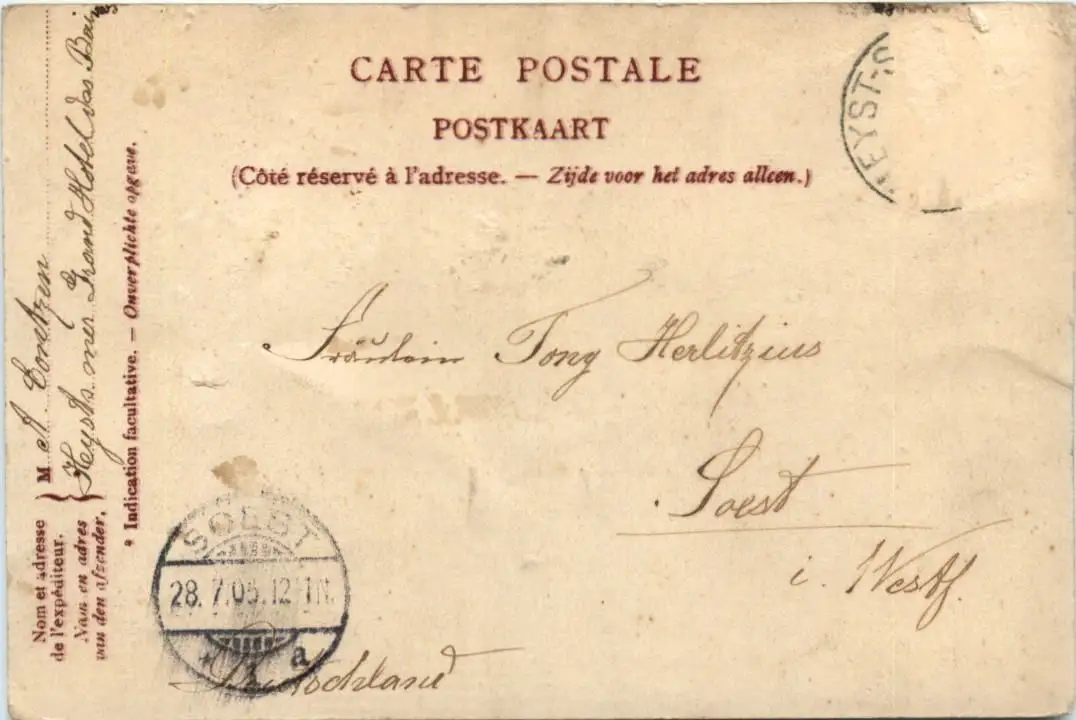 CARTE POSTALE
POSTKAART
(Côté réservé à l'adresse. — Zijde voor het adres alleen.)
HEYST
Fräulein Tony Herlitzius
Soest
i. Westf.
Deutschland
SOEST
28. 7. 05. 12-1 N.
* a
Nom et adresse
de l'expéditeur.
Nam en adres
van den afzender.
M
Heyst s. mer Grand Hotel des Bains
* Indication facultative. — Onverplichte opgave.